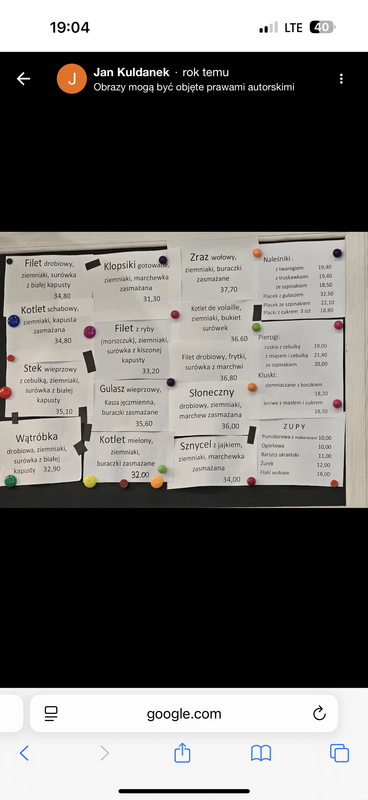 19:04
LTE
40
Jan Kuldanek · rok temu
Obrazy mogą być objęte prawami autorskimi
Filet drobiowy,
ziemniaki, surówka
z białej kapusty
34,80
Kotlet schabowy,
ziemniaki, kapusta
zasmażana
34,80
Stek wieprzowy
z cebulką, ziemniaki,
surówka z białej
kapusty
35,10
Wątróbka
drobiowa, ziemniaki,
surówka z białej
kapusty 32,90
Klopsiki gotowane,
ziemniaki, marchewka
zasmażana
31,30
Filet z ryby
(morszczuk), ziemniaki,
surówka z kiszonej
kapusty
33,20
Gulasz wieprzowy,
Kasza jęczmienna,
buraczki zasmażane
35,60
Kotlet mielony,
ziemniaki,
buraczki zasmażane
32,00
Zraz wołowy,
ziemniaki, buraczki
zasmażane
37,70
Kotlet de volaille,
ziemniaki, bukiet
surówek
36.60
Filet drobiowy, frytki,
surówka z marchwi
36,80
Słoneczny
drobiowy, ziemniaki,
marchew zasmażana
36,00
Sznycel z jajkiem,
ziemniaki, marchewka
zasmażana
34,00
Naleśniki:
z twarogiem 19,40
z truskawkami 19,40
ze szpinakiem 18,50
Placek z gulaszem 32,50
Placek ze szpinakiem 22,10
Placki z cukrem 3 szt 18,80
Pierogi:
ruskie z cebulką 19,00
z mięsem i cebulką 21,40
ze szpinakiem 20,00
Kluski:
ziemniaczane z boczkiem
18,20
leniwe z masłem i cukrem
18,30
ZUPY
Pomidorowa z makaronem 10,00
Ogórkowa 10,00
Barszcz ukraiński 11,00
Żurek 12,00
Flaki wołowe 18,00
google.com